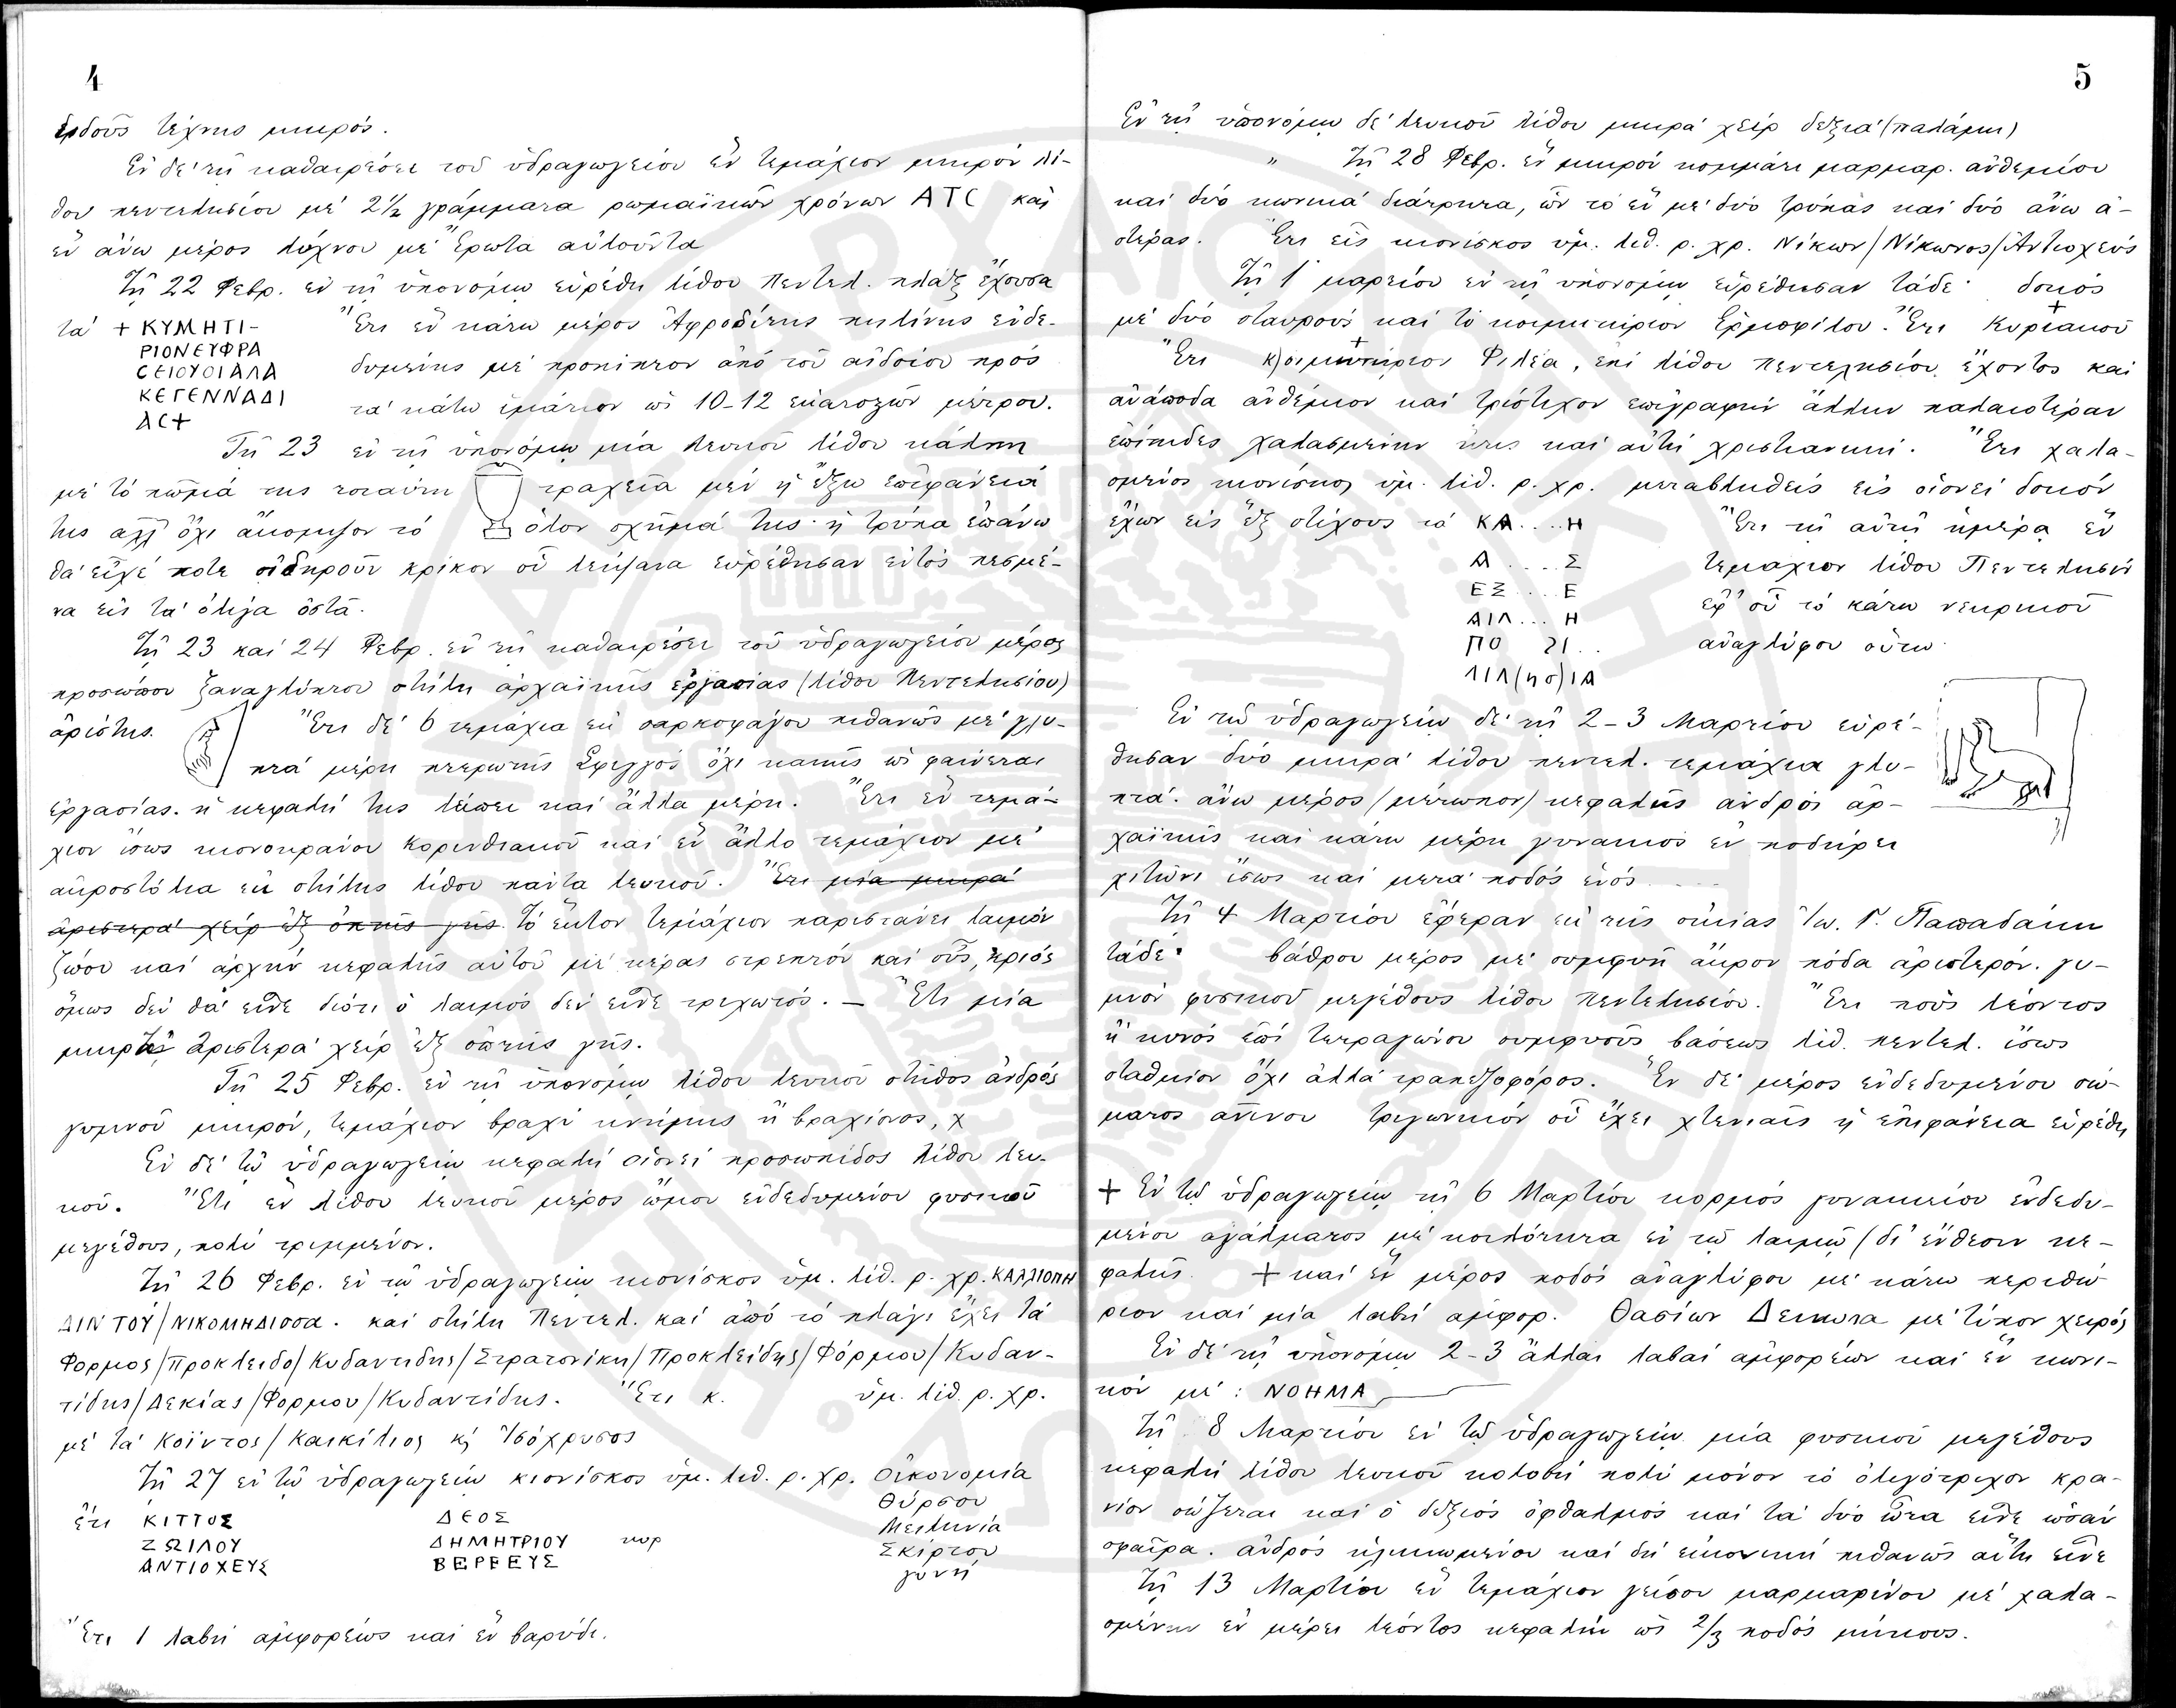 4
ἐνδοῦς τέχνης μικρός.
Ἐν δὲ τῇ καθαιρέσει τοῦ ὑδραγωγείου ἓν τεμάχιον μικρὸν λί-
θου πεντελησίου μὲ 2½ γράμματα ρωμαϊκῶν χρόνων ΑΤC καὶ
ἓν ἄνω μέρος λύχνου μὲ Ἔρωτα αὐλοῦντα
Τῇ 22 Φεβρ. ἐν τῇ ὑπονόμῳ εὑρέθη λίθου πεντελ. πλὰξ ἔχουσα
τὰ + ΚΥΜΗΤΙ-
ΡΙΟΝΕΥΦΡΑ
CΕΙΟΥΟΙΑΛΑ
ΚΕΓΕΝΝΑΔΙ
ΑC+
Ἔτι ἓν κάτω μέρος Ἀφροδίτης πηλίνης ἐνδε-
δυμένης μὲ προπῖπτον ἀπὸ τοῦ αἰδοίου πρὸς
τὰ κάτω ἱμάτιον ὡς 10-12 ἑκατοστῶν μέτρου.
Τῇ 23 ἐν τῇ ὑπονόμῳ μία λευκοῦ λίθου κάλπη
μὲ τὸ πῶμά της τοιαύτη τραχεῖα μὲν ἡ ἔξω ἐπιφάνειά
της ἀλλ' ὄχι ἄκομψον τὸ ὅλον σχῆμά της· ἡ τρύπα ἐπάνω
θὰ εἶχέ ποτε σιδηροῦν κρίκον οὗ λείψανα εὑρέθησαν ἐντὸς πεσμέ-
να εἰς τὰ ὀλίγα ὀστᾶ.
Τῇ 23 καὶ 24 Φεβρ. ἐν τῇ καθαιρέσει τοῦ ὑδραγωγείου μέρος
προσώπου ἐξαναγλύπτου στήλη ἀρχαϊκῆς ἐργασίας (λίθου Πεντελησίου)
ἀρίστης. Ἔτι δὲ 6 τεμάχια ἐκ σαρκοφάγου πιθανῶς μὲ γλυ-
πτὰ μέρη πτερωτῆς Σφιγγὸς ὄχι κακῆς ὡς φαίνεται
ἐργασίας. ἡ κεφαλή της λείπει καὶ ἄλλα μέρη. Ἔτι ἓν τεμά-
χιον ἴσως κιονοκράνου κορινθιακοῦ καὶ ἓν ἄλλο τεμάχιον μὲ
ἀκροστόλια ἐκ στήλης λίθου πάντα λευκοῦ. Ἔτι μία μικρὰ
ἀριστερὰ χεὶρ ἐξ ὀπτῆς γῆς. Τὸ ἕκτον τεμάχιον παριστάνει λαιμὸν
ζώου καὶ ἀρχὴν κεφαλῆς αὐτοῦ μὲ κέρας στρεπτὸν καὶ οὖς, κριὸς
ὅμως δὲν θὰ εἶνε διότι ὁ λαιμὸς δὲν εἶνε τριχωτός. — Ἔτι μία
μικρὰ ἀριστερὰ χεὶρ ἐξ ὀπτῆς γῆς.
Τῇ 25 Φεβρ. ἐν τῇ ὑπονόμῳ λίθου λευκοῦ στῆθος ἀνδρὸς
γυμνοῦ μικρόν, τεμάχιον βραχὺ κνήμης ἢ βραχίονος, χ
Ἐν δὲ τῷ ὑδραγωγείῳ κεφαλὴ οἱονεὶ προσωπίδος λίθου λευ-
κοῦ. Ἔτι ἓν λίθου λευκοῦ μέρος ὤμου ἐνδεδυμένου φυσικοῦ
μεγέθους, πολὺ τριμμένον.
Τῇ 26 Φεβρ. ἐν τῷ ὑδραγωγείῳ κιονίσκος ὑμ. λιθ. ρ. χρ. ΚΑΛΛΙΟΠΗ
ΔΙΝ ΤΟΥ/ΝΙΚΟΜΗΔΙΟΣΑ. καὶ στήλη Πεντελ. καὶ ἀπὸ τὸ πλάγι ἔχει τὰ
Φορμος/Προκλειδο/Κυδαντιδης/Στρατονίκη/Προκλείδης/Φόρμου/Κυδαν-
τίδης/Δεκίας/Φορμου/Κυδαντίδης. Ἔτι κ. ὑμ. λιθ. ρ. χρ.
μὲ τὰ Κοϊντος/Καικίλιος κ) Ἰσόχρυσος
Τῇ 27 ἐν τῷ ὑδραγωγείῳ κιονίσκος ὑμ. λιθ. ρ. χρ. Οἰκονομία
Θύρσου
Μειλησία
Σκίρτου
γυνή
ἔτι ΚΙΤΤΟΣ
ΖΩΙΛΟΥ
ΑΝΤΙΟΧΕΥΣ
ΔΕΟΣ
ΔΗΜΗΤΡΙΟΥ
ΒΕΡΕΕΥΣ
Ἔτι 1 λαβὴ ἀμφορέως καὶ ἓν βαρύδι.
5
Ἐν τῇ ὑπονόμῳ δὲ λευκοῦ λίθου μικρὰ χεὶρ δεξιὰ (παλάμη)
" Τῇ 28 Φεβρ. ἓν μικρὸν κομμάτι μαρμαρ. ἀνθεμίου
καὶ δύο κωνικὰ διάτρητα, ὧν τὸ ἓν μὲ δύο τρύπας καὶ δύο ἄνω ἀ-
στέρας. Ἔτι εἷς κιονίσκος ὑμ. λιθ. ρ. χρ. Νίκων/Νίκωνος/Ἀντιοχεύς
Τῇ 1 Μαρτίου ἐν τῇ ὑπονόμῳ εὑρέθησαν τάδε· δοκὸς
μὲ δύο σταυροὺς καὶ τὸ κοιμητήριον Ἑρμοφίλου. Ἔτι Κυριακοῦ
Ἔτι κ)οιμητήριον Φιλέα, ἐπὶ λίθου πεντελησίου ἔχοντος καὶ
ἀνάποδα ἀνθέμιον καὶ τρίστιχον ἐπιγραφὴν ἄλλην παλαιοτέραν
ἐπίτηδες χαλασμένην ἥτις καὶ αὐτὴ χριστιανική. Ἔτι χαλα-
σμένος κιονίσκος ὑμ. λιθ. ρ. χρ. μεταβληθεὶς εἰς οἱονεὶ δοκὸν
ἔχων εἰς ἓξ στίχους τὰ ΚΑ....Η
Α....Σ
ΕΣ....Ε
ΑΙΛ...Η
ΠΟ ΣΙ..
ΛΙΛ(ησ)ΙΑ
Ἔτι τῇ αὐτῇ ἡμέρᾳ ἓν
τεμάχιον λίθου Πεντελησίου
ἐφ' οὗ τὸ κάτω νεκρικοῦ
ἀναγλύφου οὕτω
Ἐν τῷ ὑδραγωγείῳ δὲ τῇ 2-3 Μαρτίου εὑρέ-
θησαν δύο μικρὰ λίθου πεντελ. τεμάχια γλυ-
πτά. ἄνω μέρος (μέτωπον) κεφαλῆς ἀνδρὸς ἀρ-
χαϊκῆς καὶ κάτω μέρη γυναικὸς ἐν ποδήρει
χιτῶνι ἴσως καὶ μετὰ ποδὸς ἑνὸς....
Τῇ 4 Μαρτίου ἔφεραν ἐκ τῆς οἰκίας Ἰω. Γ. Παπαδάκη
τάδε· βάθρου μέρος μὲ συμφυῆ ἄκρον πόδα ἀριστερόν. γυ-
μνὸν φυσικοῦ μεγέθους λίθου πεντελησίου. Ἔτι ποὺς λέοντος
ἢ κυνὸς ἐπὶ τετραγώνου συμφυοῦς βάσεως λιθ. πεντελ. ἴσως
σταθμίον ὄχι ἀλλὰ τραπεζοφόρος. Ἓν δὲ μέρος ἐνδεδυμένου σώ-
ματος πηλίνου τριγωνικὸν οὗ ἔχει χλενιαῖς ἡ ἐπιφάνεια εὑρέθη
+ Ἐν τῷ ὑδραγωγείῳ τῇ 6 Μαρτίου κορμὸς γυναικείου ἐνδεδυ-
μένου ἀγάλματος μὲ κοιλότητα ἐν τῷ λαιμῷ (δι' ἔνθεσιν κε-
φαλῆς. + καὶ ἓν μέρος ποδὸς ἀναγλύφου μὲ κάτω περιθώ-
ριον καὶ μία λαβὴ ἀμφορ. Θασίων Δεικωτα μὲ τύπον χειρὸς
Ἐν δὲ τῇ ὑπονόμῳ 2-3 ἄλλαι λαβαὶ ἀμφορέων καὶ ἓν κωνι-
κὸν μὲ: ΝΟΗΜΑ
Τῇ 8 Μαρτίου ἐν τῷ ὑδραγωγείῳ μία φυσικοῦ μεγέθους
κεφαλὴ λίθου λευκοῦ κολοβὴ πολὺ μόνον τὸ ὀλιγότριχον κρα-
νίον σώζεται καὶ ὁ δεξιὸς ὀφθαλμὸς καὶ τὰ δύο ὦτα εἶνε ὡσὰν
σφαῖρα. ἀνδρὸς ἡλικιωμένου καὶ δὴ εἰκονικὴ πιθανῶς αὕτη εἶνε
Τῇ 13 Μαρτίου ἓν τεμάχιον γείσου μαρμαρίνου μὲ χαλα-
σμένην ἐν μέρει λέοντος κεφαλὴν ὡς 2/3 ποδὸς μήκους.